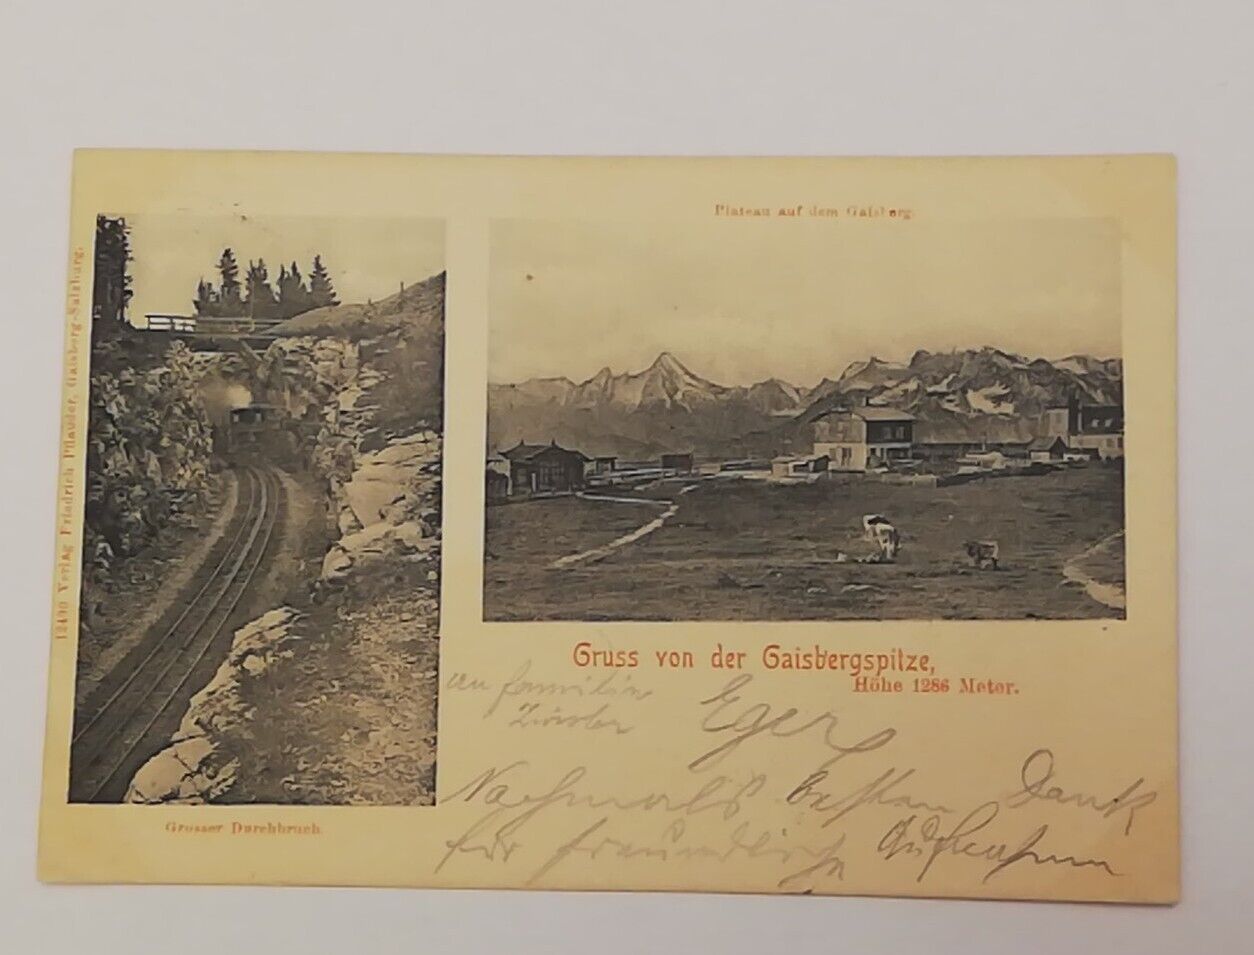 Plateau auf dem Gaisberg.
12490 Verlag Friedrich Pflauder, Gaisberg-Salzburg.
Grosser Durchbruch.
Gruss von der Gaisbergspitze,
Höhe 1286 Meter.
an familie
Eger
Nochmals besten Dank
für freundliche Aufnahme